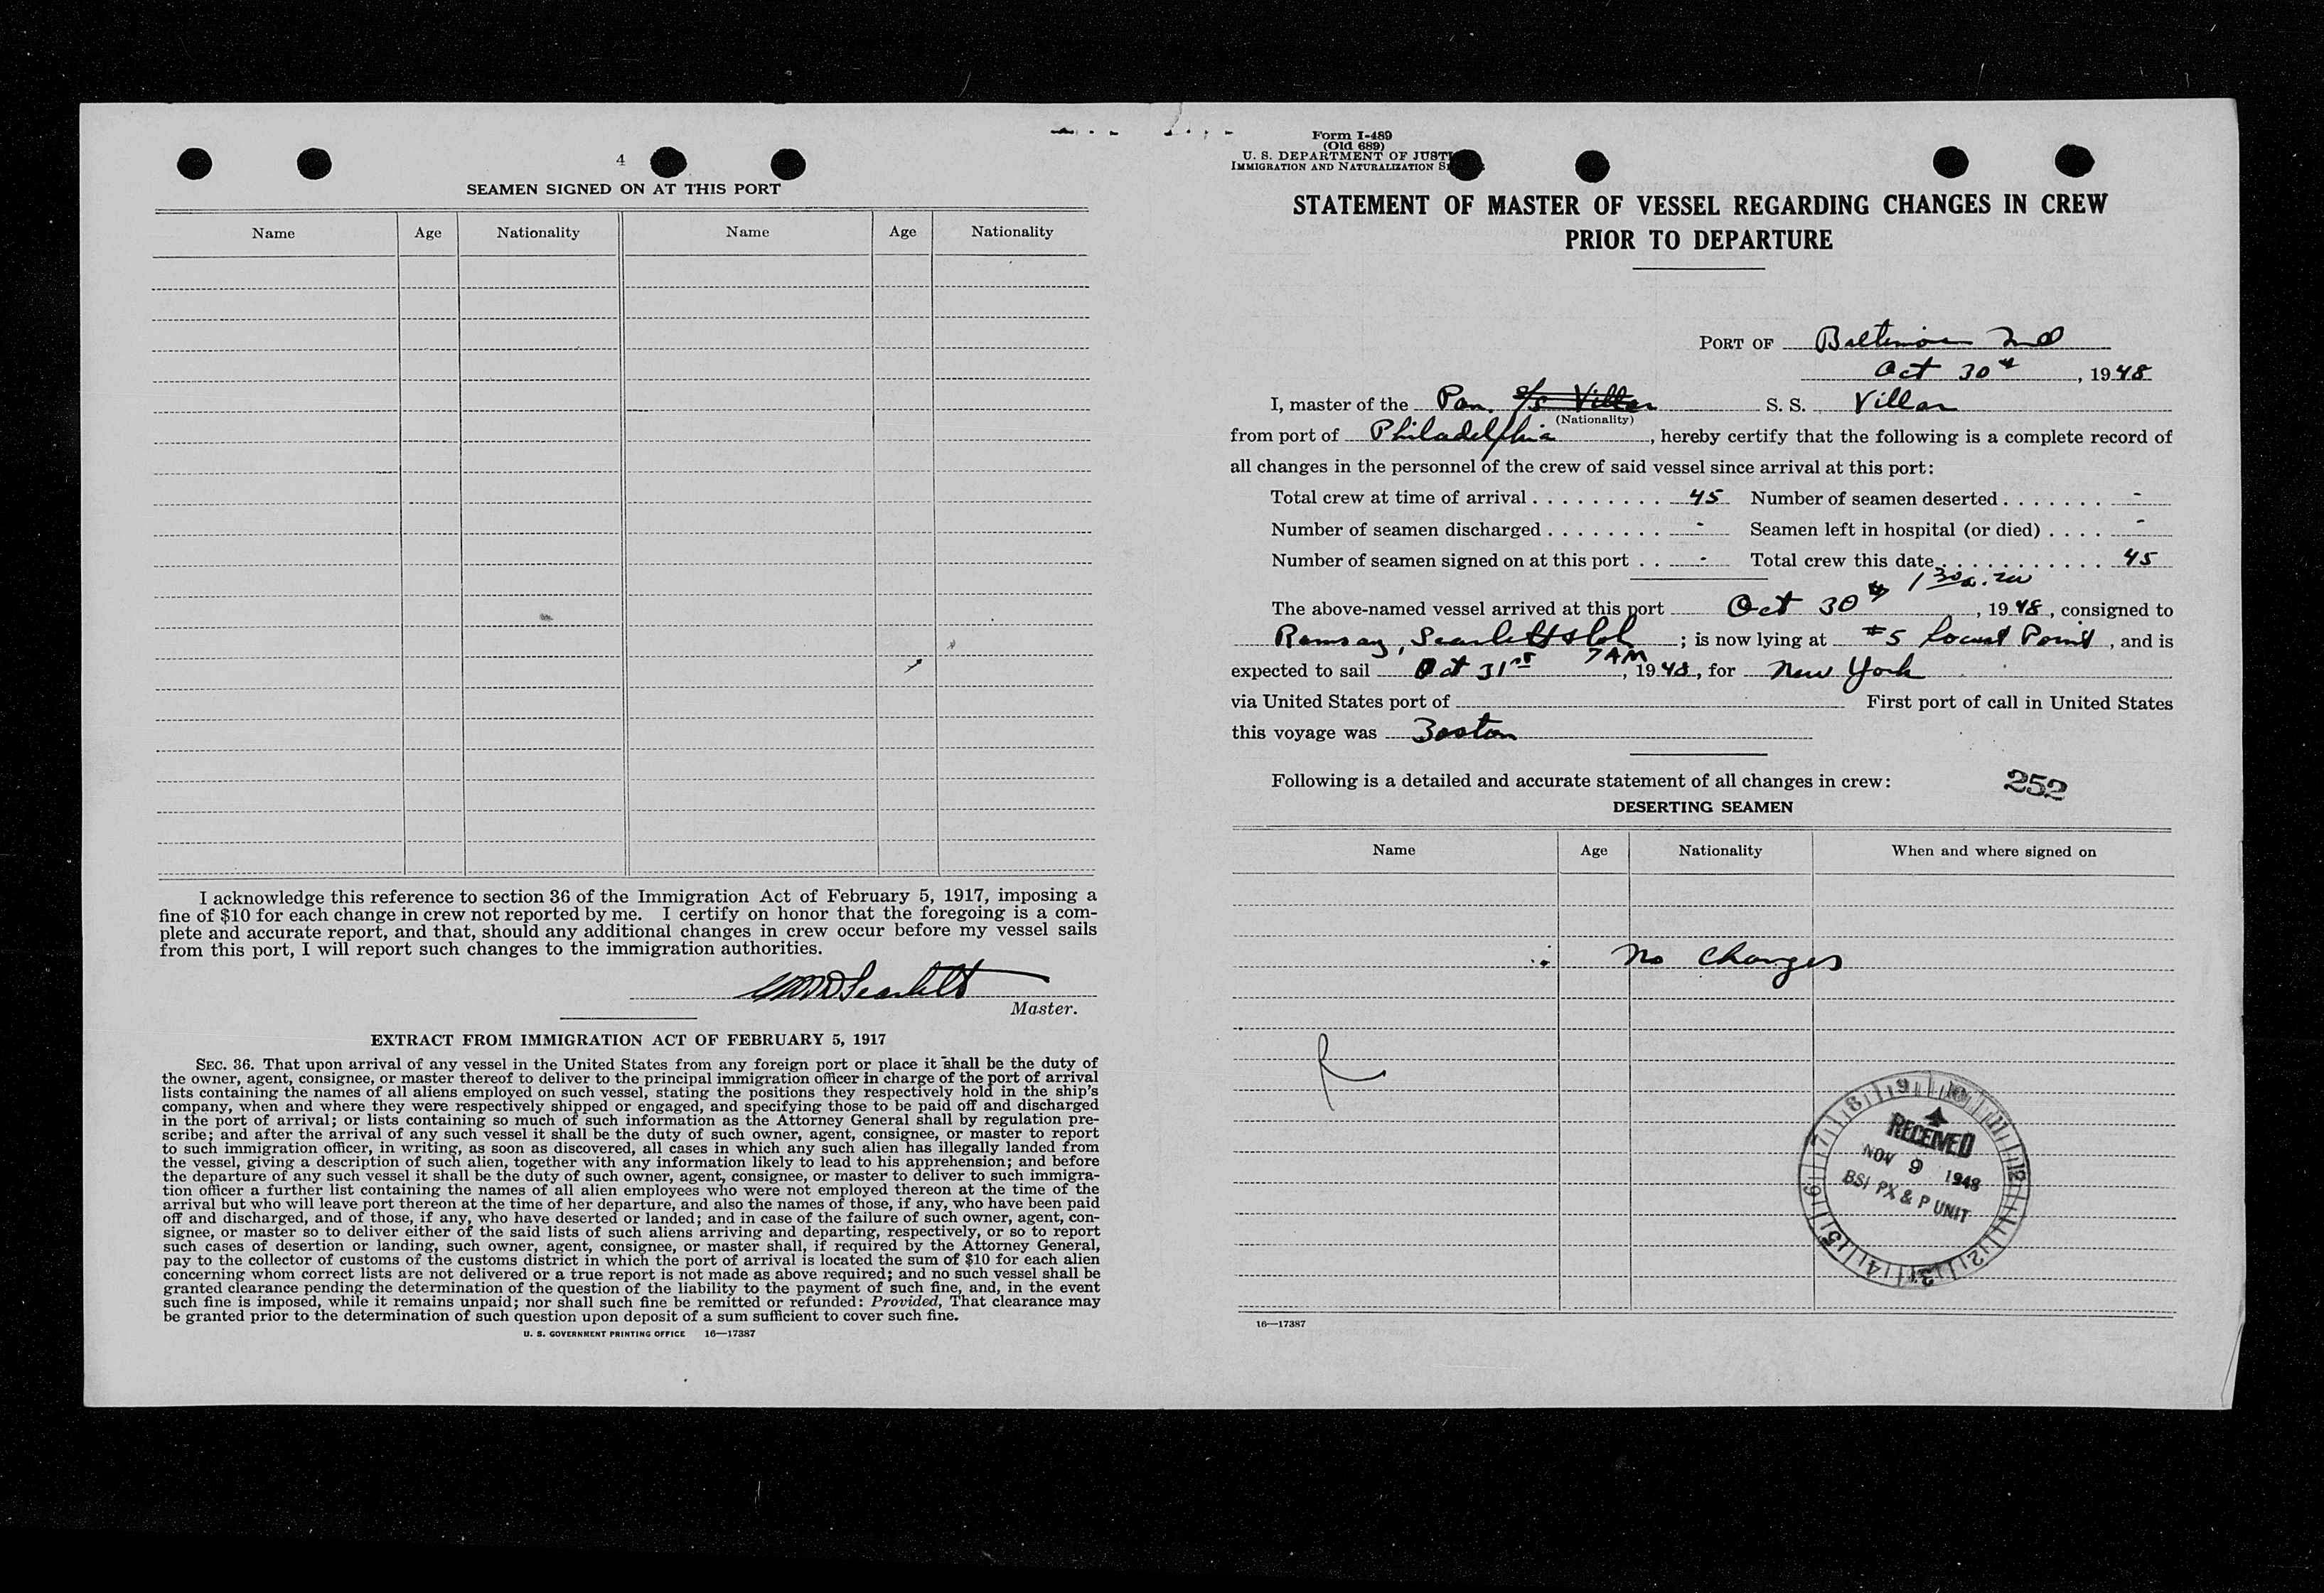 4
SEAMEN SIGNED ON AT THIS PORT
Name Age Nationality Name Age Nationality
I acknowledge this reference to section 36 of the Immigration Act of February 5, 1917, imposing a
fine of $10 for each change in crew not reported by me. I certify on honor that the foregoing is a com-
plete and accurate report, and that, should any additional changes in crew occur before my vessel sails
from this port, I will report such changes to the immigration authorities.
Scarlett
Master.
EXTRACT FROM IMMIGRATION ACT OF FEBRUARY 5, 1917
SEC. 36. That upon arrival of any vessel in the United States from any foreign port or place it shall be the duty of
the owner, agent, consignee, or master thereof to deliver to the principal immigration officer in charge of the port of arrival
lists containing the names of all aliens employed on such vessel, stating the positions they respectively hold in the ship's
company, when and where they were respectively shipped or engaged, and specifying those to be paid off and discharged
in the port of arrival; or lists containing so much of such information as the Attorney General shall by regulation pre-
scribe; and after the arrival of any such vessel it shall be the duty of such owner, agent, consignee, or master to report
to such immigration officer, in writing, as soon as discovered, all cases in which any such alien has illegally landed from
the vessel, giving a description of such alien, together with any information likely to lead to his apprehension; and before
the departure of any such vessel it shall be the duty of such owner, agent, consignee, or master to deliver to such immigra-
tion officer a further list containing the names of all alien employees who were not employed thereon at the time of the
arrival but who will leave port thereon at the time of her departure, and also the names of those, if any, who have been paid
off and discharged, and of those, if any, who have deserted or landed; and in case of the failure of such owner, agent, con-
signee, or master so to deliver either of the said lists of such aliens arriving and departing, respectively, or so to report
such cases of desertion or landing, such owner, agent, consignee, or master shall, if required by the Attorney General,
pay to the collector of customs of the customs district in which the port of arrival is located the sum of $10 for each alien
concerning whom correct lists are not delivered or a true report is not made as above required; and no such vessel shall be
granted clearance pending the determination of the question of the liability to the payment of such fine, and, in the event
such fine is imposed, while it remains unpaid; nor shall such fine be remitted or refunded: Provided, That clearance may
be granted prior to the determination of such question upon deposit of a sum sufficient to cover such fine.
U. S. GOVERNMENT PRINTING OFFICE 16—17387
Form I-489
(Old 689)
U. S. DEPARTMENT OF JUSTI
IMMIGRATION AND NATURALIZATION S
STATEMENT OF MASTER OF VESSEL REGARDING CHANGES IN CREW
PRIOR TO DEPARTURE
PORT OF Baltimore Md
Oct 30th, 1948
I, master of the Pan. S/S Villar S. S. Villar
(Nationality)
from port of Philadelphia, hereby certify that the following is a complete record of
all changes in the personnel of the crew of said vessel since arrival at this port:
Total crew at time of arrival . . . . . . . . . 45 Number of seamen deserted . . . . . . . -
Number of seamen discharged . . . . . . . . - Seamen left in hospital (or died) . . . . -
Number of seamen signed on at this port . . - Total crew this date . . . . . . . . . . . 45
The above-named vessel arrived at this port Oct 30th 1 30 a.m, 1948, consigned to
Ramsay, Scarlett & Co; is now lying at #5 Locust Point, and is
expected to sail Oct 31st 7 AM, 1948, for New York
via United States port of First port of call in United States
this voyage was Boston
Following is a detailed and accurate statement of all changes in crew: 252
DESERTING SEAMEN
Name Age Nationality When and where signed on
No Changes
9 10 11 12 1 2 3 4 5 6 7 8
RECEIVED
NOV 9 1948
BSI PX & P UNIT
16—17387